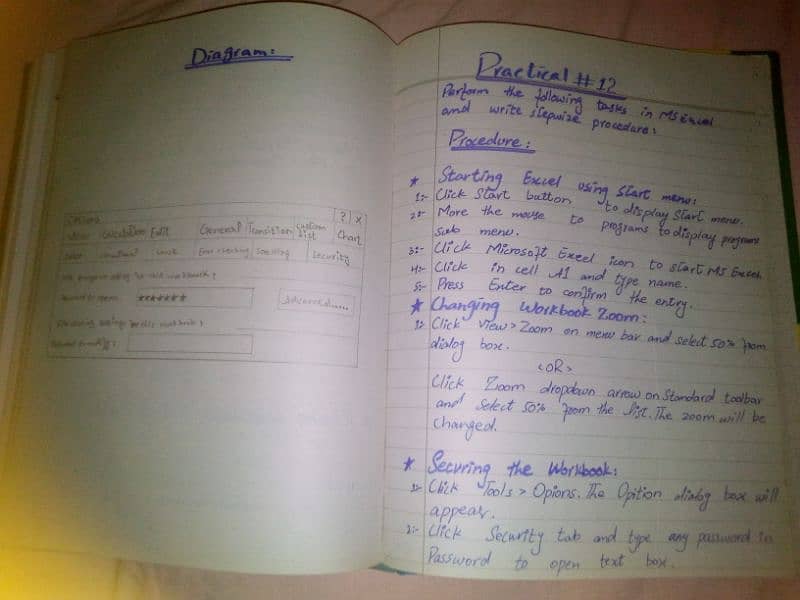 Diagram:
Options ? X
View Calculation Edit General Transition Custom list Chart
Color International Save Error checking Spelling Security
File encryption settings for this workbook:
Password to open: ******* Advanced.....
File sharing settings for this workbook:
Password to modify:
Practical # 12
Perform the following tasks in MS Excel
and write stepwize procedure:
Procedure:
* Starting Excel using Start menu:
1:- Click Start button to display Start menu.
2:- More the mouse to programs to display programs
sub menu.
3:- Click Microsoft Excel icon to start MS Excel.
4:- Click in cell A1 and type name.
5:- Press Enter to confirm the entry.
* Changing Workbook Zoom:
1:- Click View > Zoom on menu bar and select 50% from
dialog box.
<OR>
Click Zoom dropdown arrow on Standard toolbar
and select 50% from the list. The zoom will be
changed.
* Securing the Workbook:
1:- Click Tools > Opions. The Opition dialog box will
appear.
2:- Click Security tab and type any password in
Password to open text box.